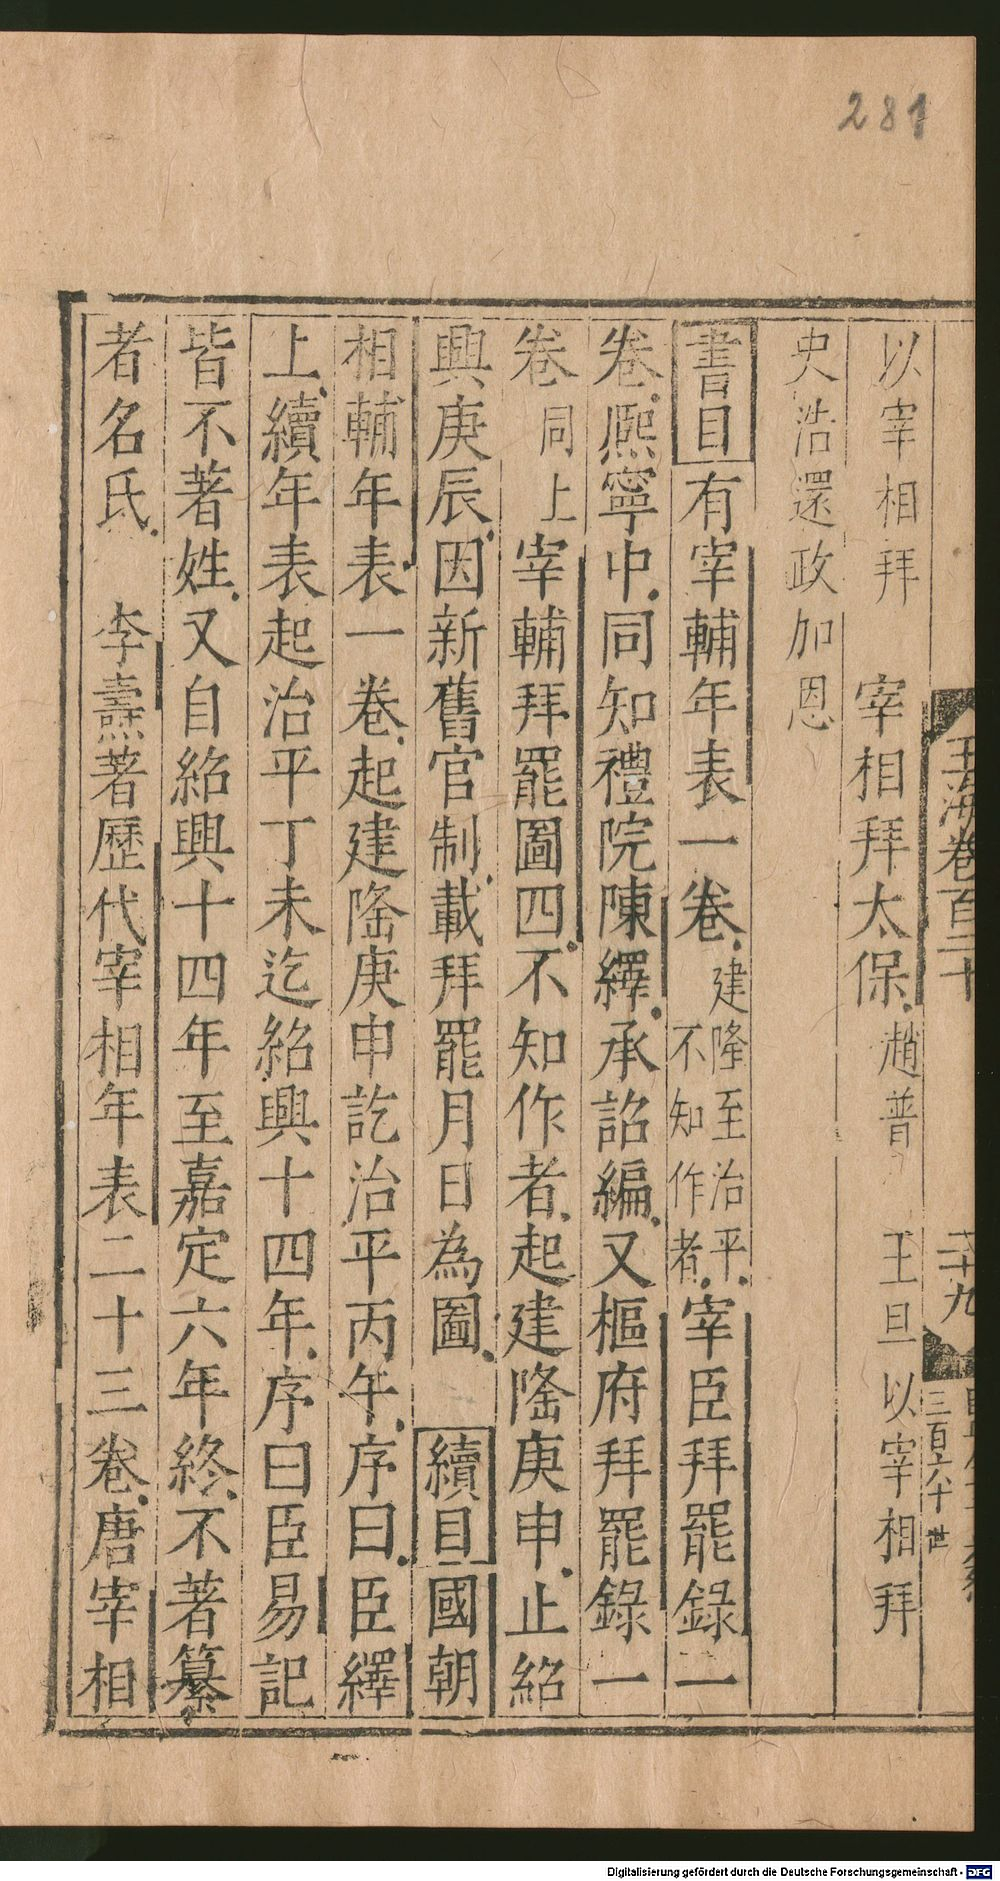 281
玉海卷百二十
二十九
三百六十世
以宰相拜　宰相拜太保趙普　王旦以宰相拜
史浩還政加恩
書目有宰輔年表一卷建隆至治平不知作者宰臣拜罷錄一
卷熙寧中同知禮院陳繹承詔編又樞府拜罷錄一
卷同上宰輔拜罷圖四不知作者起建隆庚申止紹
興庚辰因新舊官制載拜罷月日為圖　續目國朝
相輔年表一卷起建隆庚申訖治平丙午序曰臣繹
上續年表起治平丁未迄紹興十四年序曰臣易記
皆不著姓又自紹興十四年至嘉定六年終不著纂
者名氏　李燾著歷代宰相年表二十三卷唐宰相
Digitalisierung gefördert durch die Deutsche Forschungsgemeinschaft - DFG